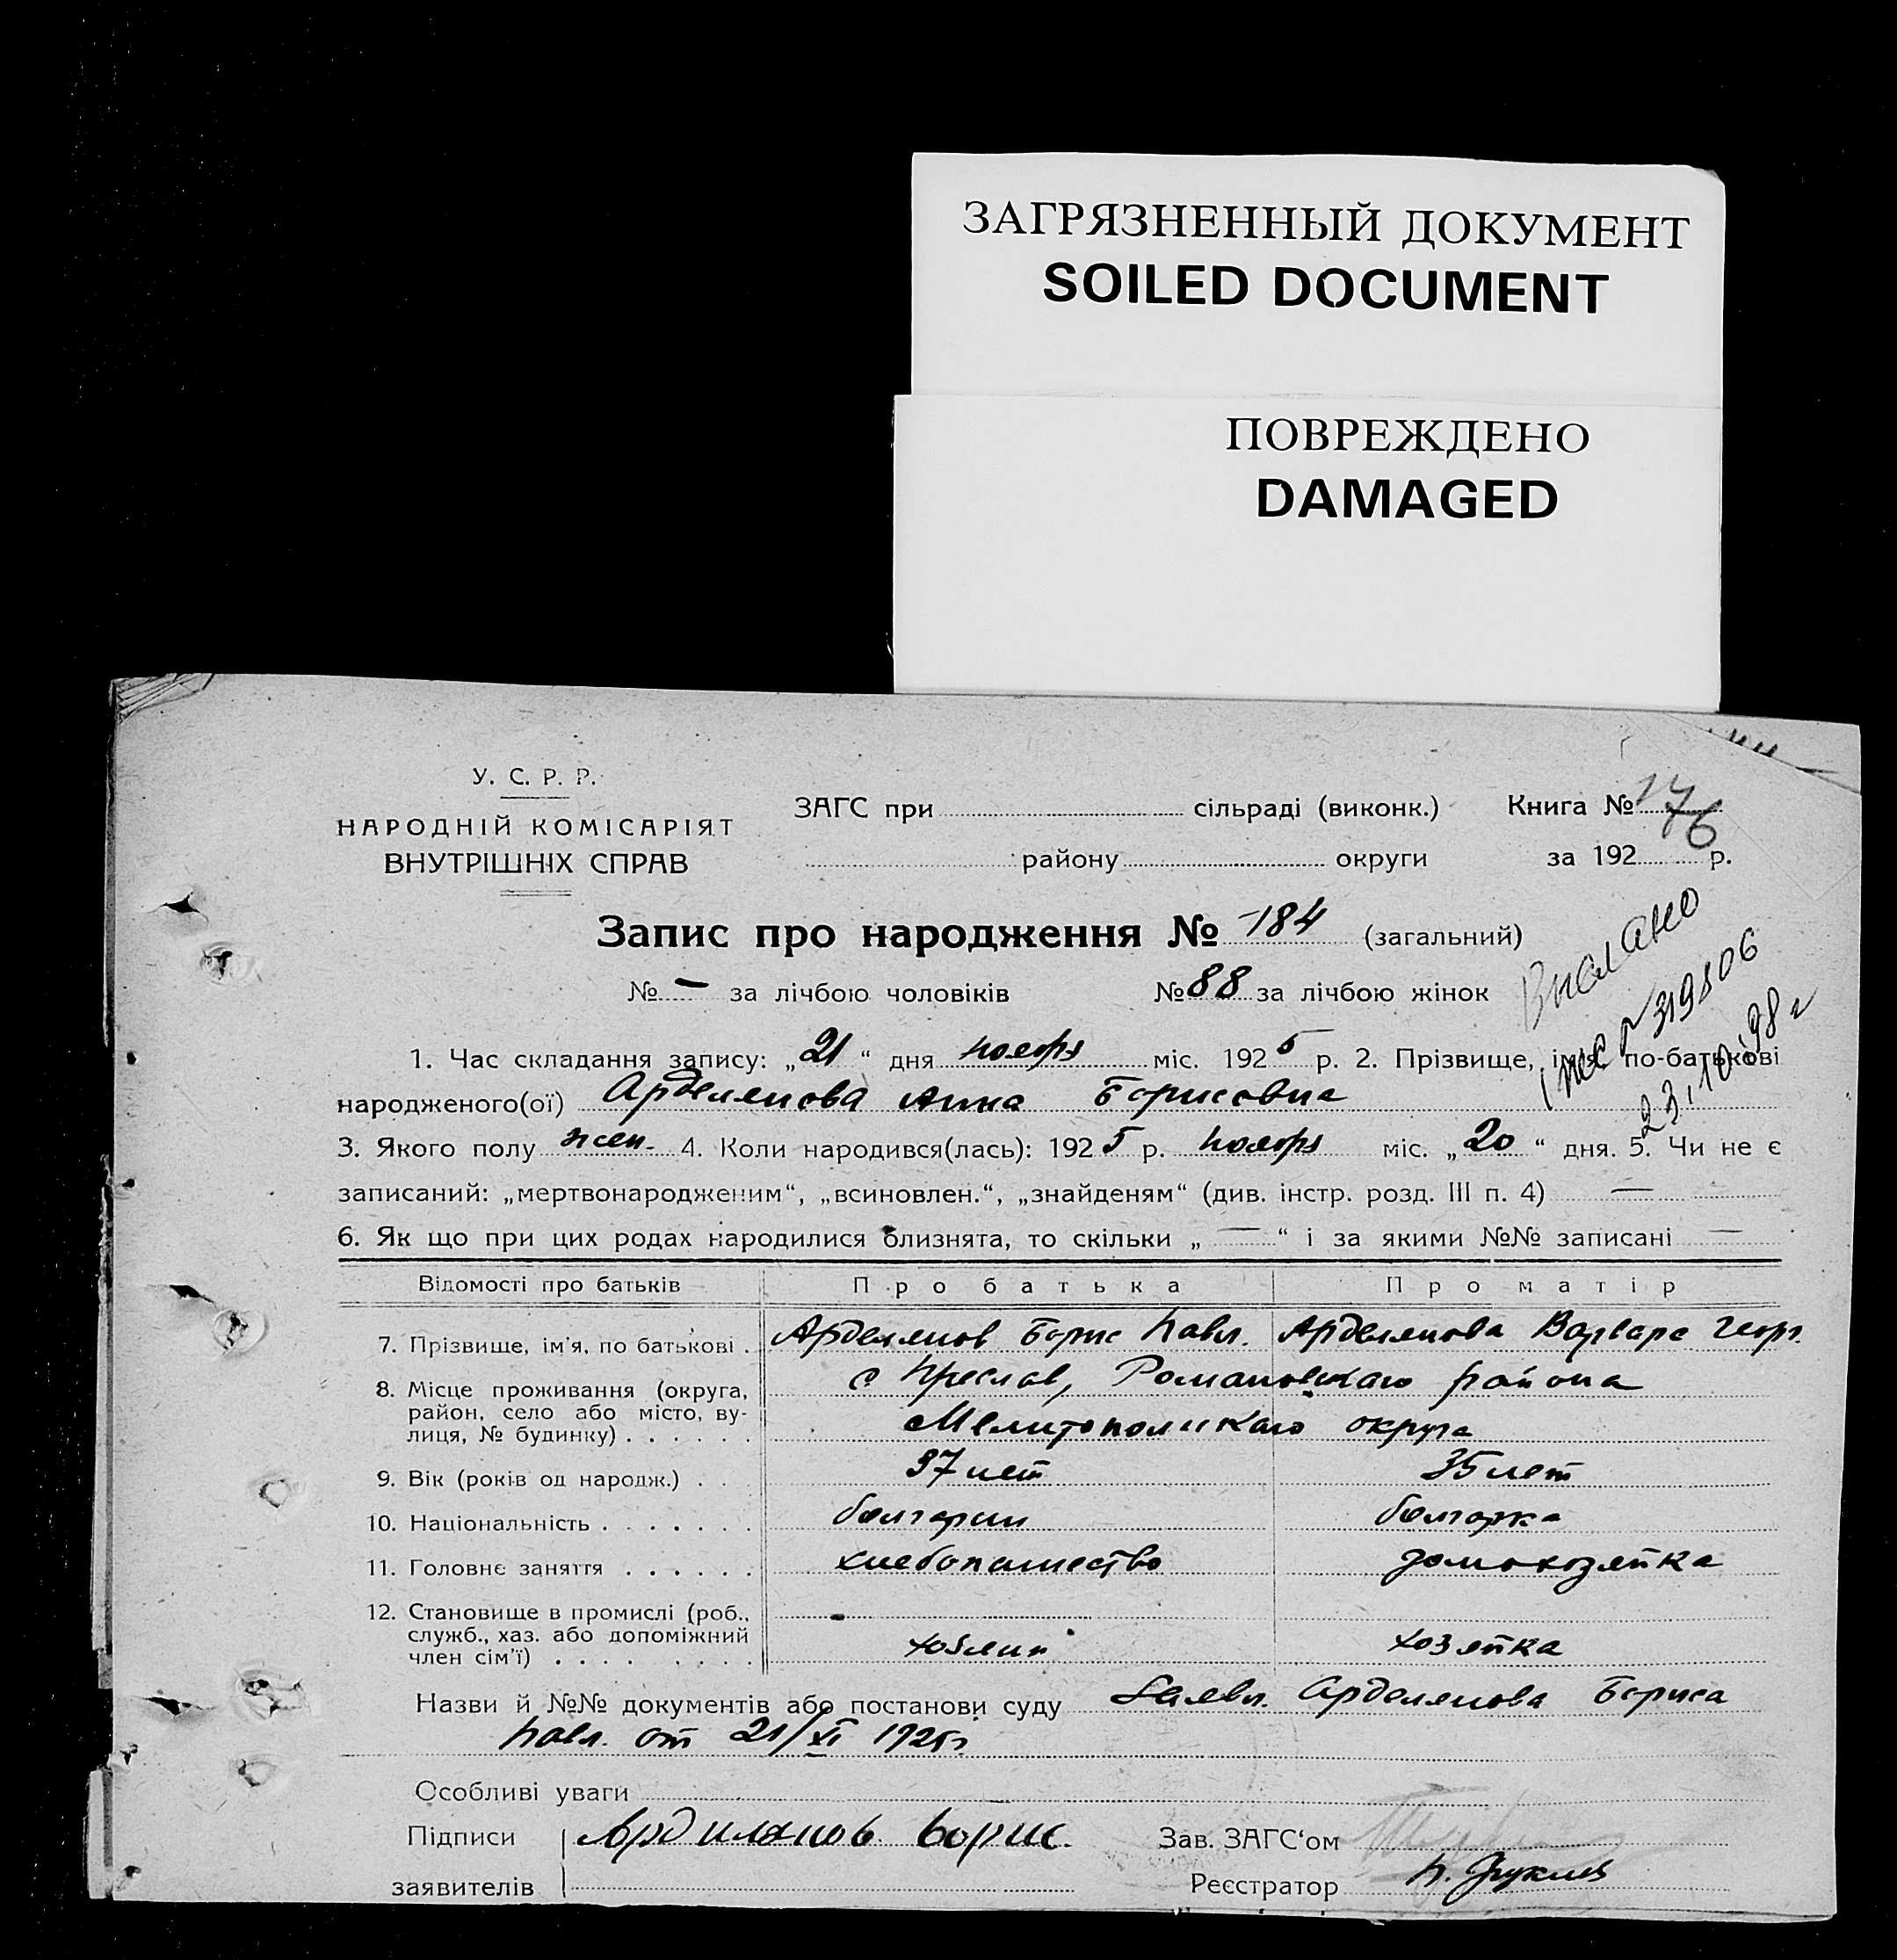 ЗАГРЯЗНЕННЫЙ ДОКУМЕНТ
SOILED DOCUMENT
ПОВРЕЖДЕНО
DAMAGED
У. С. Р. Р.
НАРОДНІЙ КОМІСАРІЯТ
ВНУТРІШНІХ СПРАВ
ЗАГС при сільраді (виконк.) Книга № 176
району округи за 192 р.
Запис про народження № 184 (загальний)
№ — за лічбою чоловіків № 88 за лічбою жінок
Выдано
319806
23.10.98 г
1. Час складання запису: „21“ дня ноября міс. 1925 р. 2. Прізвище, ім'я, по-батькові
народженого(ої) Арделянова Анна Борисовна
3. Якого полу жен. 4. Коли народився(лась): 1925 р. ноября міс. „20“ дня. 5. Чи не є
записаний: „мертвонародженим“, „всиновлен.“, „знайденям“ (див. інстр. розд. III п. 4) —
6. Як що при цих родах народилися близнята, то скільки „—“ і за якими №№ записані —
Відомості про батьків Про батька Про матір
7. Прізвище, ім'я, по батькові . Арделянов Борис Павл. Арделянова Варвара Георг.
8. Місце проживання (округа, район, село або місто, ву-лиця, № будинку) . . . . . . с Преслав, Романовскаго района
Мелитопольскаго округа
9. Вік (років од народж.) . . . 37 лет 35 лет
10. Національність . . . . . . . болгарин болгарка
11. Головнє заняття . . . . . . хлебопашество домохозяйка
12. Становище в промислі (роб., служб., хаз. або допоміжний член сім'ї) . . . . . . . . хозяин хозяйка
Назви й №№ документів або постанови суду Заявл. Арделянова Бориса
Павл. от 21/XI 1925г.
Особливі уваги
Підписи Ардилянов Борис. Зав. ЗАГС'ом
заявителів Реєстратор